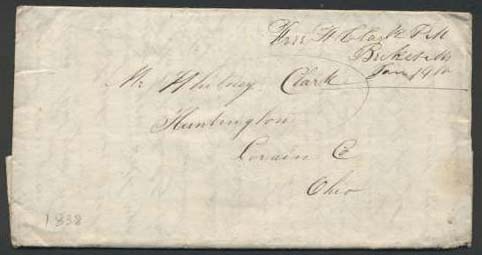 Free W Clark P.M
Becket Ms
Jan 19th
Mr Whitney Clark
Huntington
Lorain Co
Ohio
1838